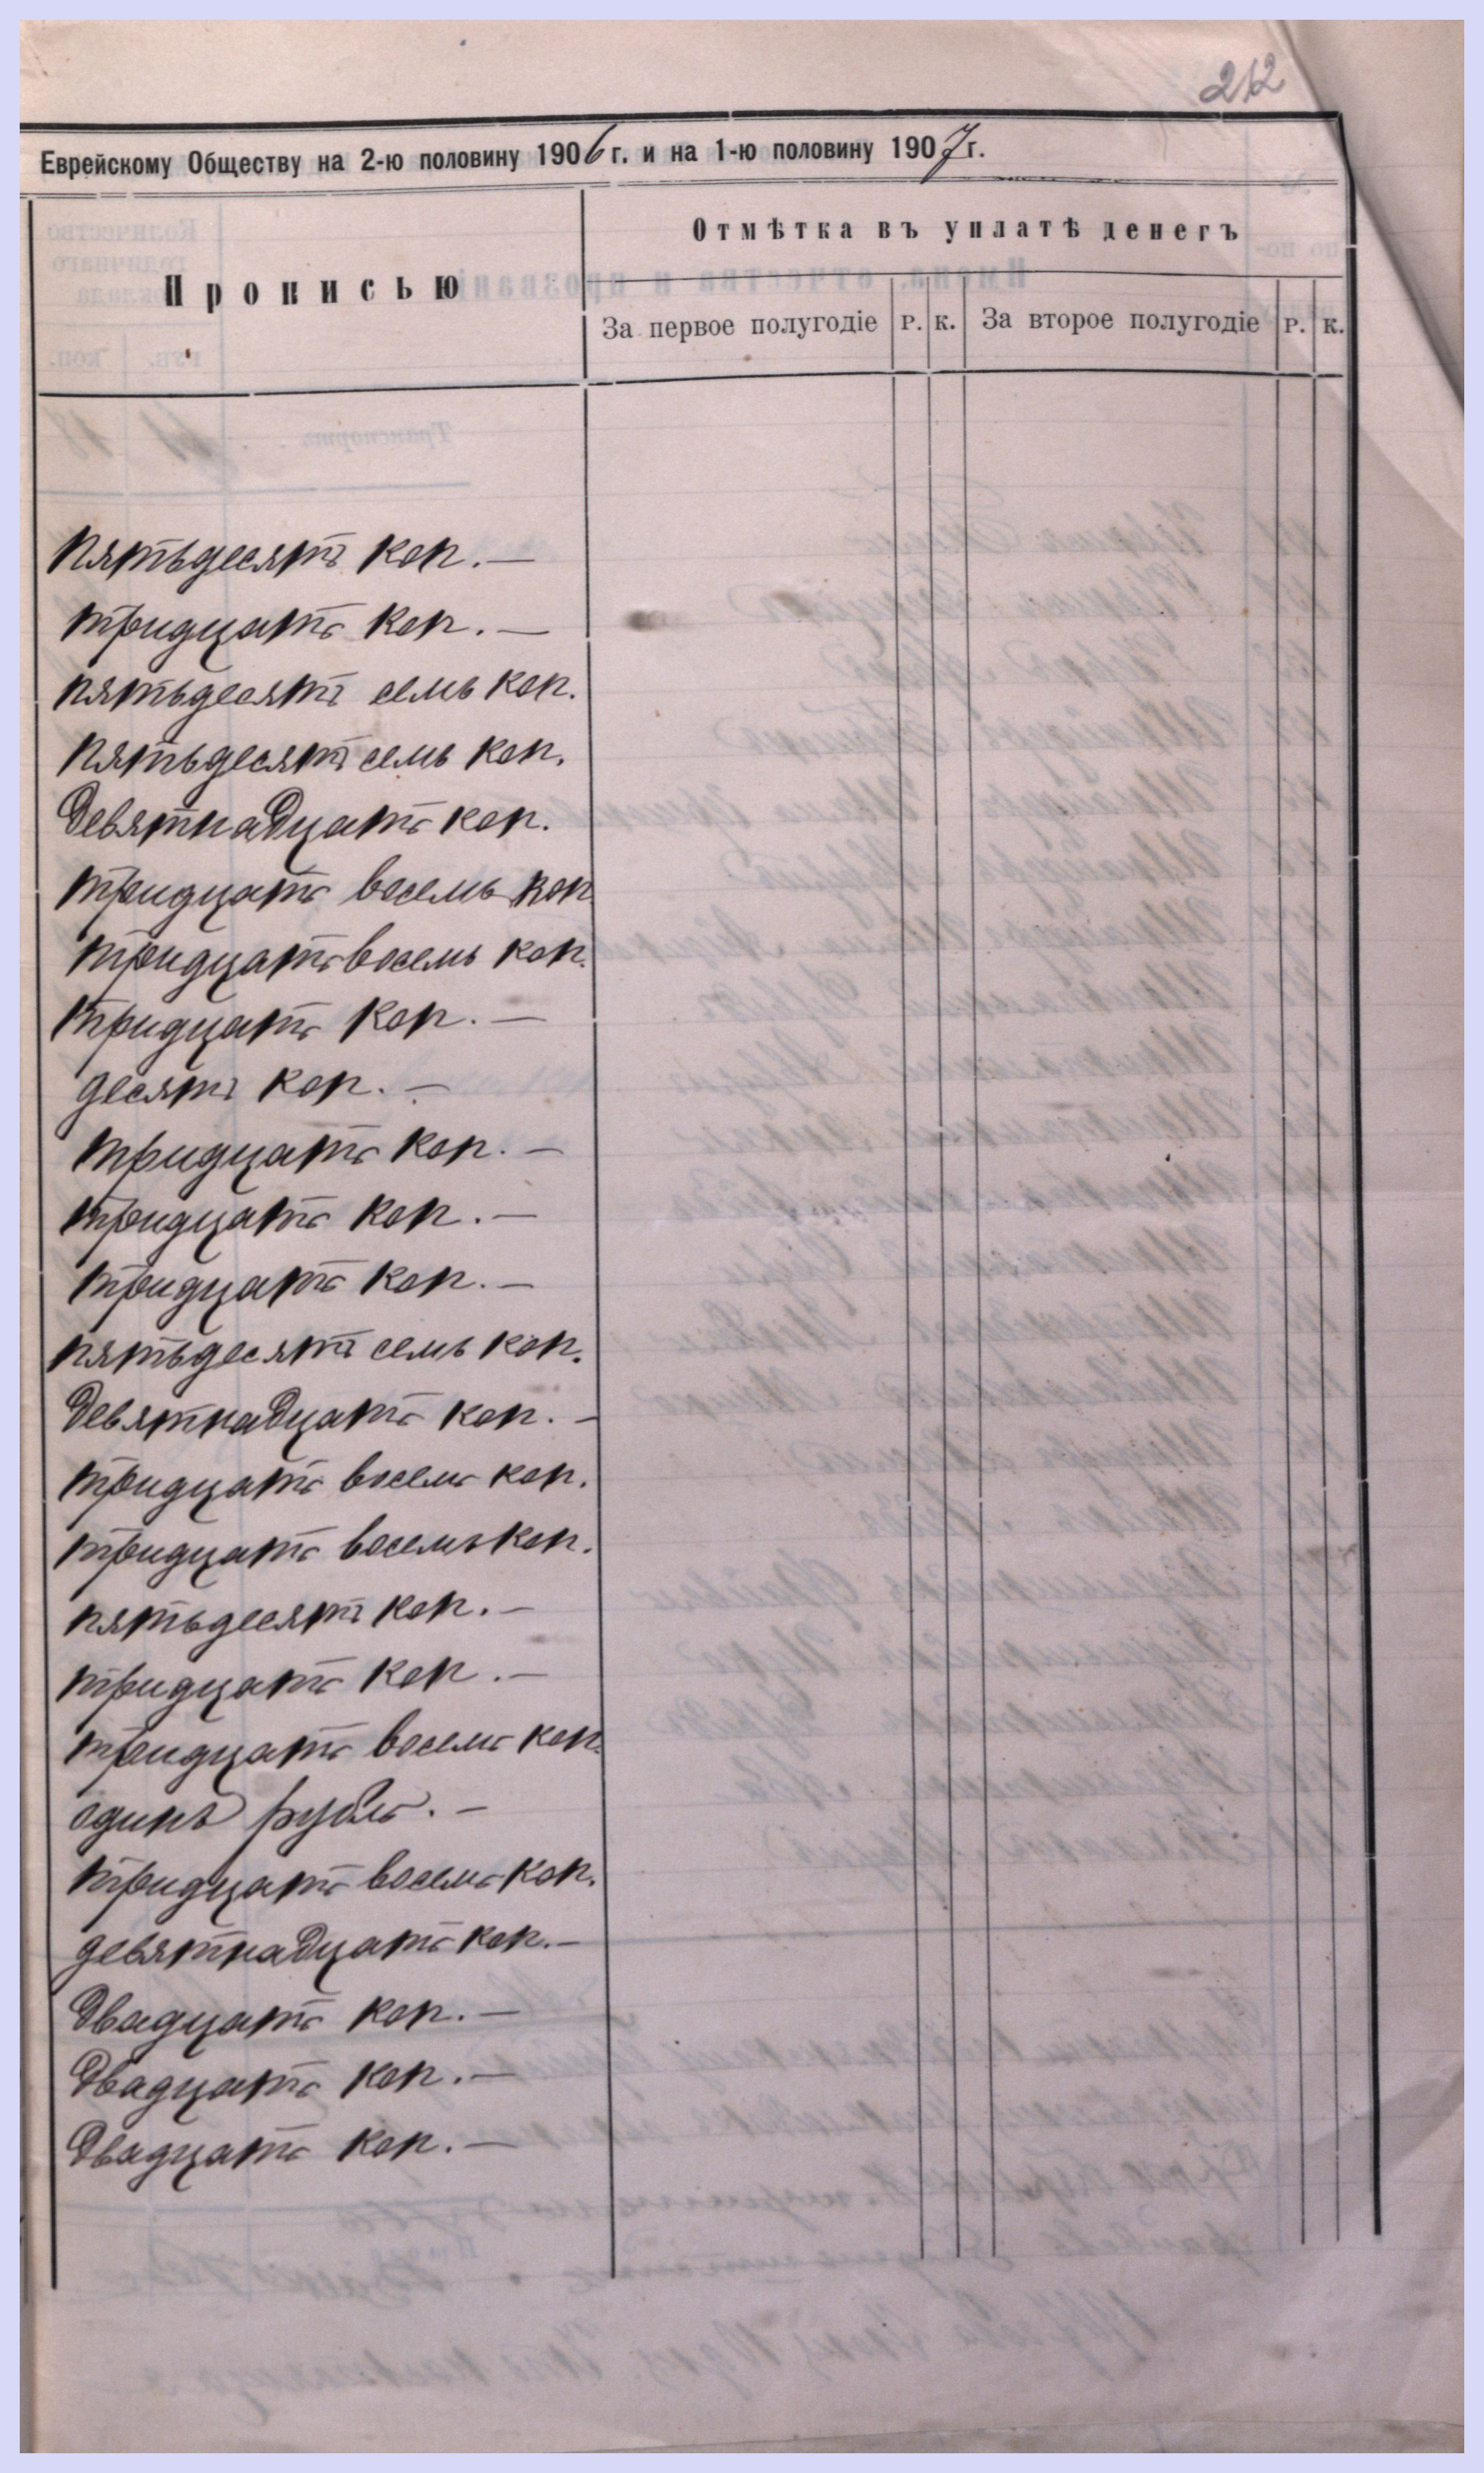 212
Еврейскому Обществу на 2-ю половину 1906 г. и на 1-ю половину 1907 г.
Прописью
Отмѣтка въ уплатѣ денегъ
За первое полугодіе Р. К. За второе полугодіе Р. К.
Пятьдесятъ коп. —
тридцать коп. —
пятьдесятъ семь коп.
пятьдесятъ семь коп.
Девятнадцать коп.
тридцать восемь коп.
тридцать восемь коп.
тридцать коп. —
десять коп. —
тридцать коп. —
тридцать коп. —
тридцать коп. —
пятьдесятъ семь коп.
Девятнадцать коп. —
тридцать восемь коп.
тридцать восемь коп.
пятьдесятъ коп. —
тридцать коп. —
тридцать восемь коп.
одинъ рубль. —
тридцать восемь коп.
девятнадцать коп. —
Двадцать коп. —
Двадцать коп. —
Двадцать коп. —